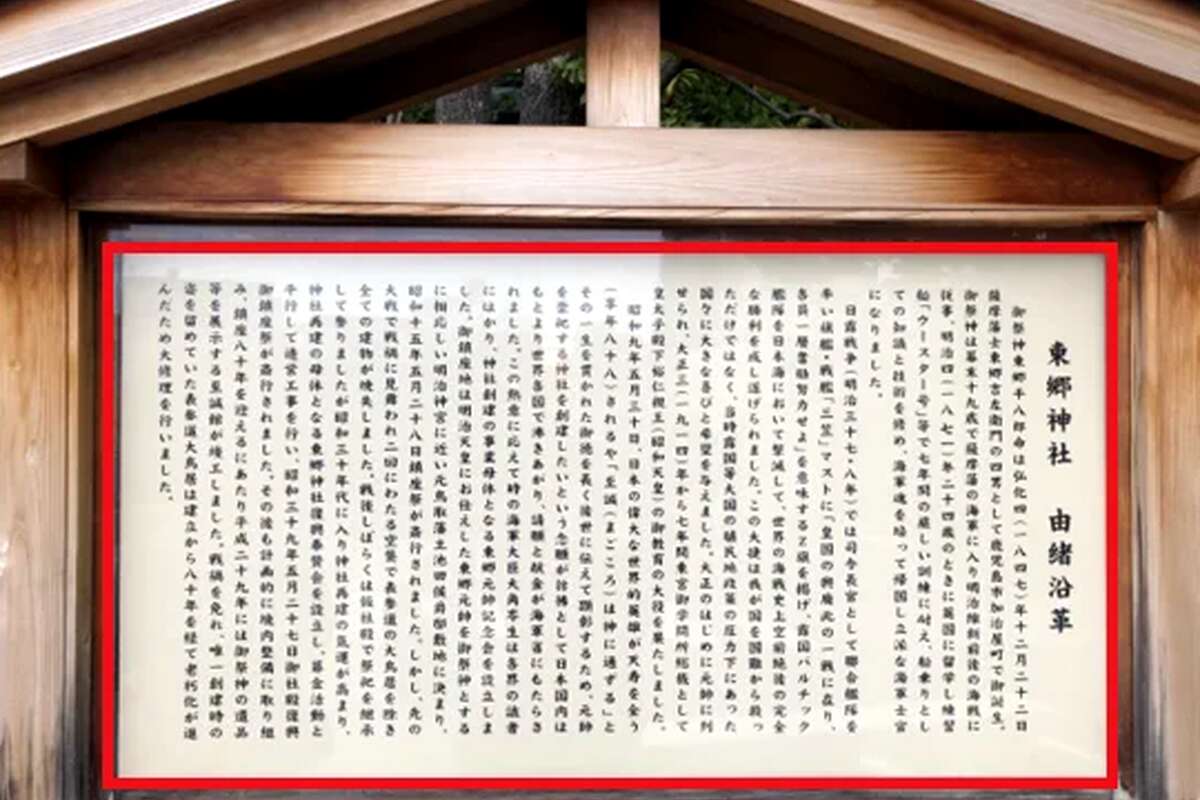 東郷神社　由緒沿革
御祭神東郷平八郎命は弘化四(一八四七)年十二月二十二日
薩摩藩士東郷吉左衛門の四男として鹿児島市加治屋町で御誕生。
御祭神は幕末十九歳で薩摩藩の海軍に入り明治維新前後の海戦に
従事、明治四(一八七一)年二十四歳のときに英国に留学し練習
船「ウースター号」等で七年間の厳しい訓練に耐え、船乗りとし
ての知識と技術を修め、海軍魂を培って帰国し立派な海軍士官
になりました。
日露戦争(明治三十七・八年)では司令長官として聯合艦隊を
率い旗艦・戦艦「三笠」マストに「皇国の興廃此の一戦に在り、
各員一層奮励努力せよ」を意味するZ旗を掲げ、露国バルチック
艦隊を日本海において撃滅して、世界の海戦史上空前絶後の完全
な勝利を成し遂げられました。この大捷は我が国を国難から救っ
ただけではなく、当時露国等大国の植民地政策の圧力下にあった
国々に大きな喜びと希望を与えました。大正のはじめに元帥に列
せられ、大正三(一九一四)年から七年間東宮御学問所総裁として
皇太子殿下裕仁親王(昭和天皇)の御教育の大役を果たしました。
昭和九年五月三十日、日本の偉大な世界的英雄が天寿を全う
(享年八十八)されるや「至誠(まごころ)は神に通ずる」と
その一生を貫かれた御徳を長く後世に伝えて顕彰するため、元帥
を祭祀する神社を創建したいという念願が彷彿として日本国内は
もとより世界各国で沸きあがり、請願と献金が海軍省にもたらさ
れました。この熱意に応えて時の海軍大臣大角岑生は各界の識者
にはかり、神社創建の事業母体となる東郷元帥記念会を設立しま
した。御鎮座地は明治天皇にお仕えした東郷元帥を御祭神とする
に相応しい明治神宮に近い元鳥取藩主池田侯爵御敷地に決まり、
昭和十五年五月二十八日鎮座祭が斎行されました。しかし、先の
大戦で戦禍に見舞われ二回にわたる空襲で表参道の大鳥居を除き
全ての建物が焼失しました。戦後しばらくは仮社殿で祭祀を継承
して参りましたが昭和三十年代に入り神社再建の気運が高まり、
神社再建の母体となる東郷神社復興奉賛会を設立し、募金活動と
平行して造営工事を行い、昭和三十九年五月二十七日御社殿復興
御鎮座祭が斎行されました。その後も計画的に境内整備に取り組
み、鎮座八十年を迎えるにあたり平成二十九年には御祭神の遺品
等を展示する至誠館が竣工しました。戦禍を免れ、唯一創建時の
姿を留めていた表参道大鳥居は建立から八十年を経て老朽化が進
んだため大修理を行いました。